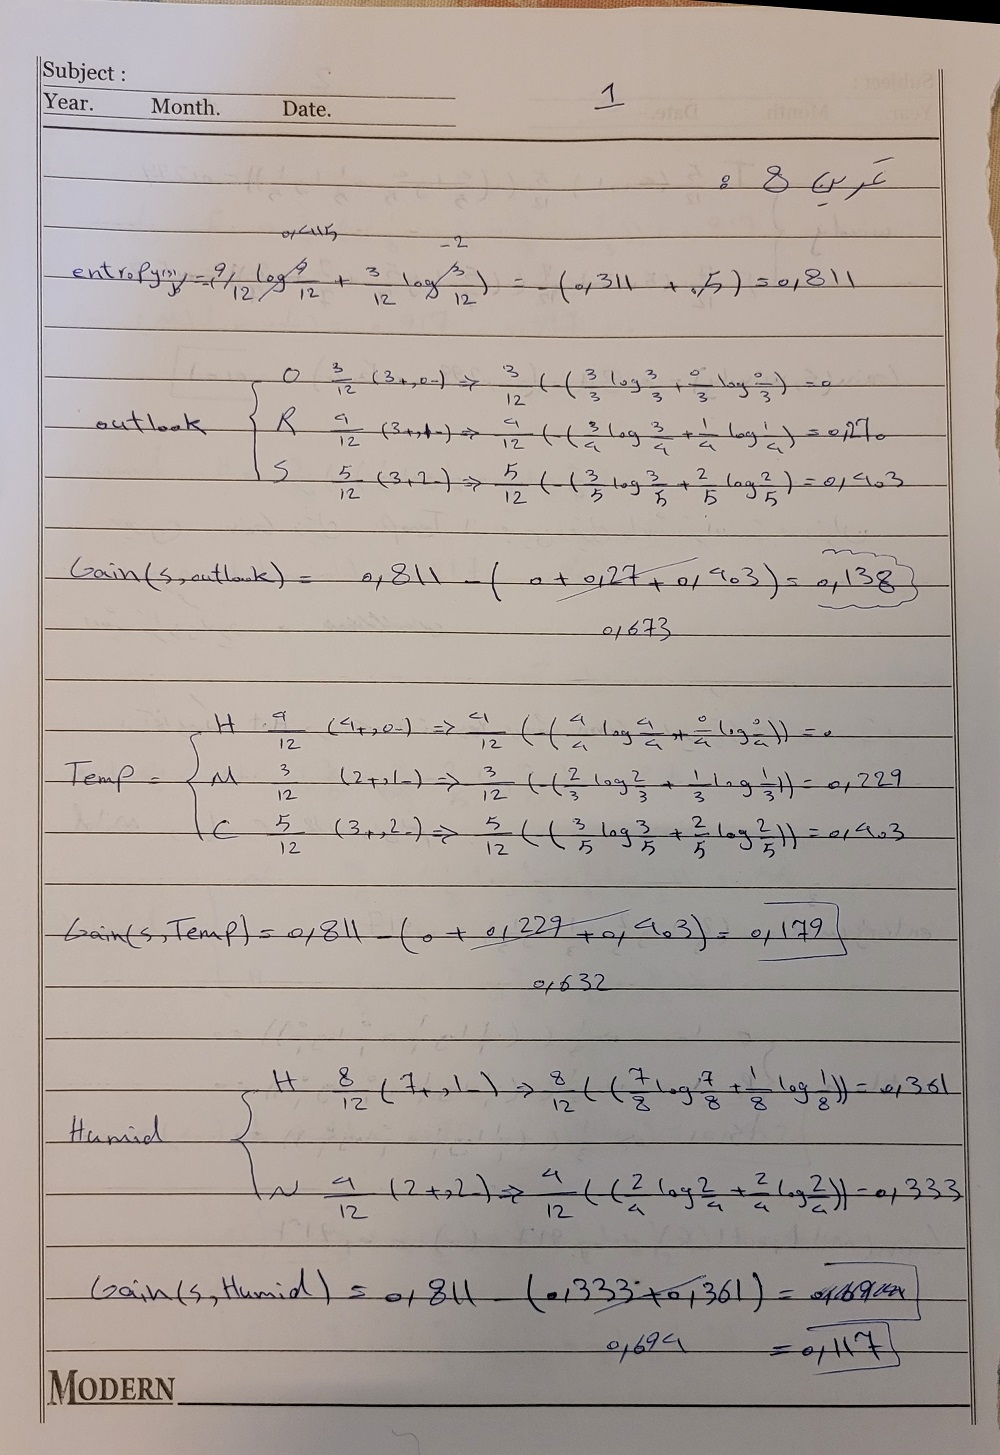 Subject :
Year. Month. Date.
1
تمرین 8 :
0,415 -2
entropy(s) = -(9/12 log 9/12 + 3/12 log 3/12) = -(0,311 + .5) = 0,811
O 3/12 (3+,0-) ⇒ 3/12 (-(3/3 log 3/3 + 0/3 log 0/3) = 0
outlook { R 4/12 (3+,1-) ⇒ 4/12 (-(3/4 log 3/4 + 1/4 log 1/4) = 0,270
S 5/12 (3+2-) ⇒ 5/12 (-(3/5 log 3/5 + 2/5 log 2/5) = 0,403
Gain(s,outlook) = 0,811 - (0 + 0,27 + 0,403) = 0,138
0,673
H 4/12 (4+,0-) ⇒ 4/12 (-(4/4 log 4/4 + 0/4 log 0/4)) = 0
Temp = { M 3/12 (2+,1-) ⇒ 3/12 (-(2/3 log 2/3 + 1/3 log 1/3)) = 0,229
C 5/12 (3+,2-) ⇒ 5/12 (-(3/5 log 3/5 + 2/5 log 2/5)) = 0,403
Gain(s,Temp) = 0,811 - (0 + 0,229 + 0,403) = 0,179
0,632
H 8/12 (7+,1-) ⇒ 8/12 (-(7/8 log 7/8 + 1/8 log 1/8)) = 0,361
Humid {
N 4/12 (2+,2-) ⇒ 4/12 (-(2/4 log 2/4 + 2/4 log 2/4)) = 0,333
Gain(s,Humid) = 0,811 - (0,333 + 0,361) =
0,694 = 0,117
MODERN